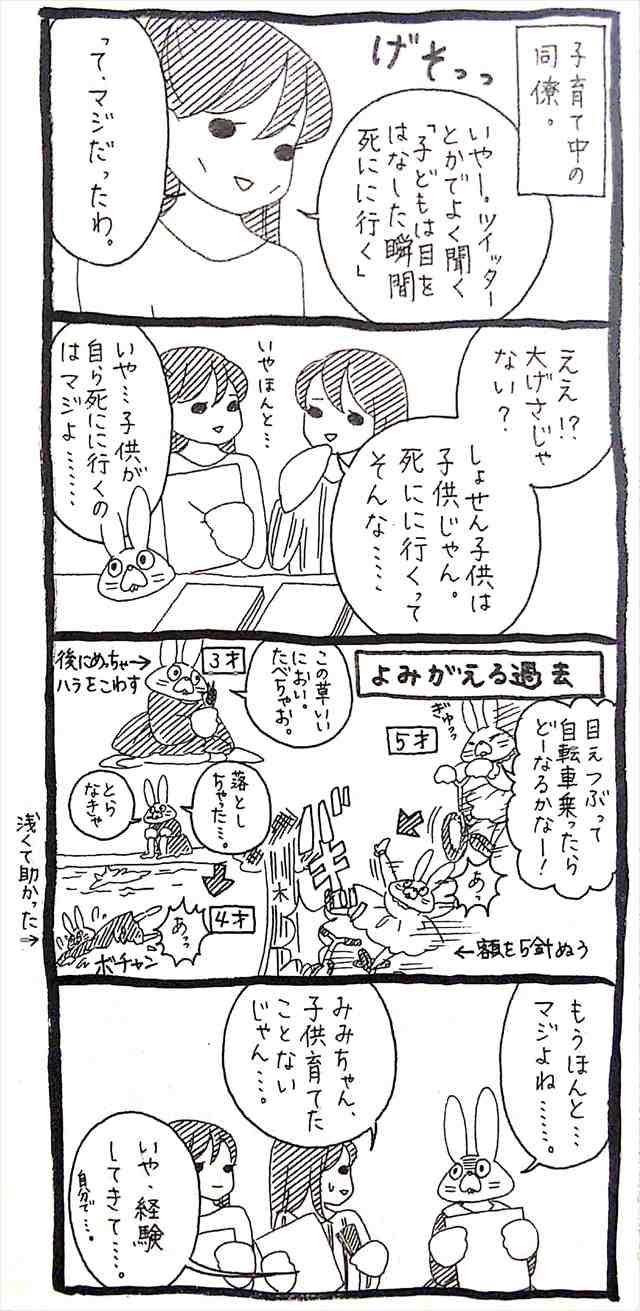 子育て中の
同僚。
げそっっ
いやー。ツイッター
とかでよく聞く
「子どもは目を
はなした瞬間
死にに行く」
って、マジだったわ。
ええ!?
大げさじゃ
ない?
しょせん子供は
子供じゃん。
死にに行くって
そんな……
いやほんと…
いや…子供が
自ら死にに行くの
はマジよ………
よみがえる過去
目えつぶって
自転車乗ったら
どーなるかなー!
ぎゅっ
5才
あっ
ギギ
木
←額を5針ぬう
3才
この草いい
におい。
たべちゃお。
後にめっちゃ→
ハラをこわす
落とし
ちゃった…。
とら
なきゃ
4才
あっ
ボチャン
浅くて助かった→
もうほんと…
マジよね……。
みみちゃん、
子供育てた
ことない
じゃん…。
いや・経験
してきて……。
自分で…。